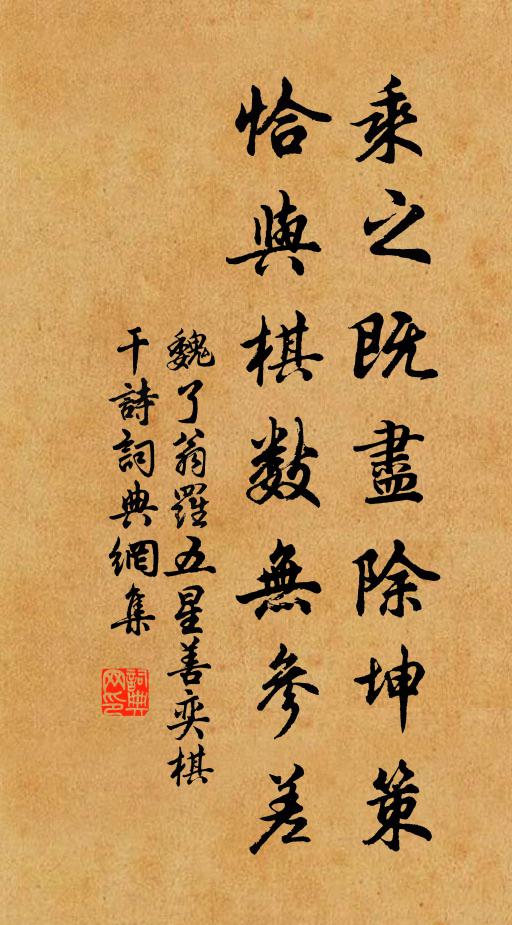 乘之既盡除坤策
恰與棋數無參差
魏了翁羅五星善奕棋
干詩詞典網集
詞典網印